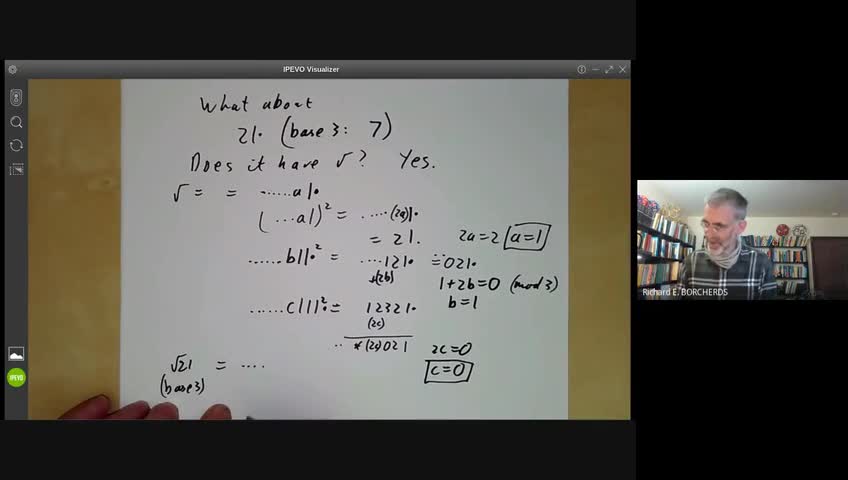 IPEVO Visualizer
What about
21. (base 3: 7)
Does it have √? Yes.
√ = = ......a1.
(...a1)² = ....(2a)1.
= 21. 2a=2 a=1
......b11.² = ....121. =...021.
+(2b) 1+2b=0 (mod 3)
b=1
......c111.² = 12321.
(2c)
..*(2c)021 2c=0
c=0
√21 = ....
(base 3)
IPEVO
Richard E. BORCHERDS